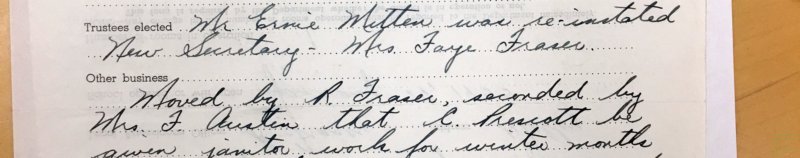 Trustees elected Mr Ernie Mitten was re-instated
New Secretary - Mrs. Faye Fraser.
Other business
Moved by R Fraser, seconded by
Mrs. F. Austin that C. Prescott be
given janitor work for winter months,